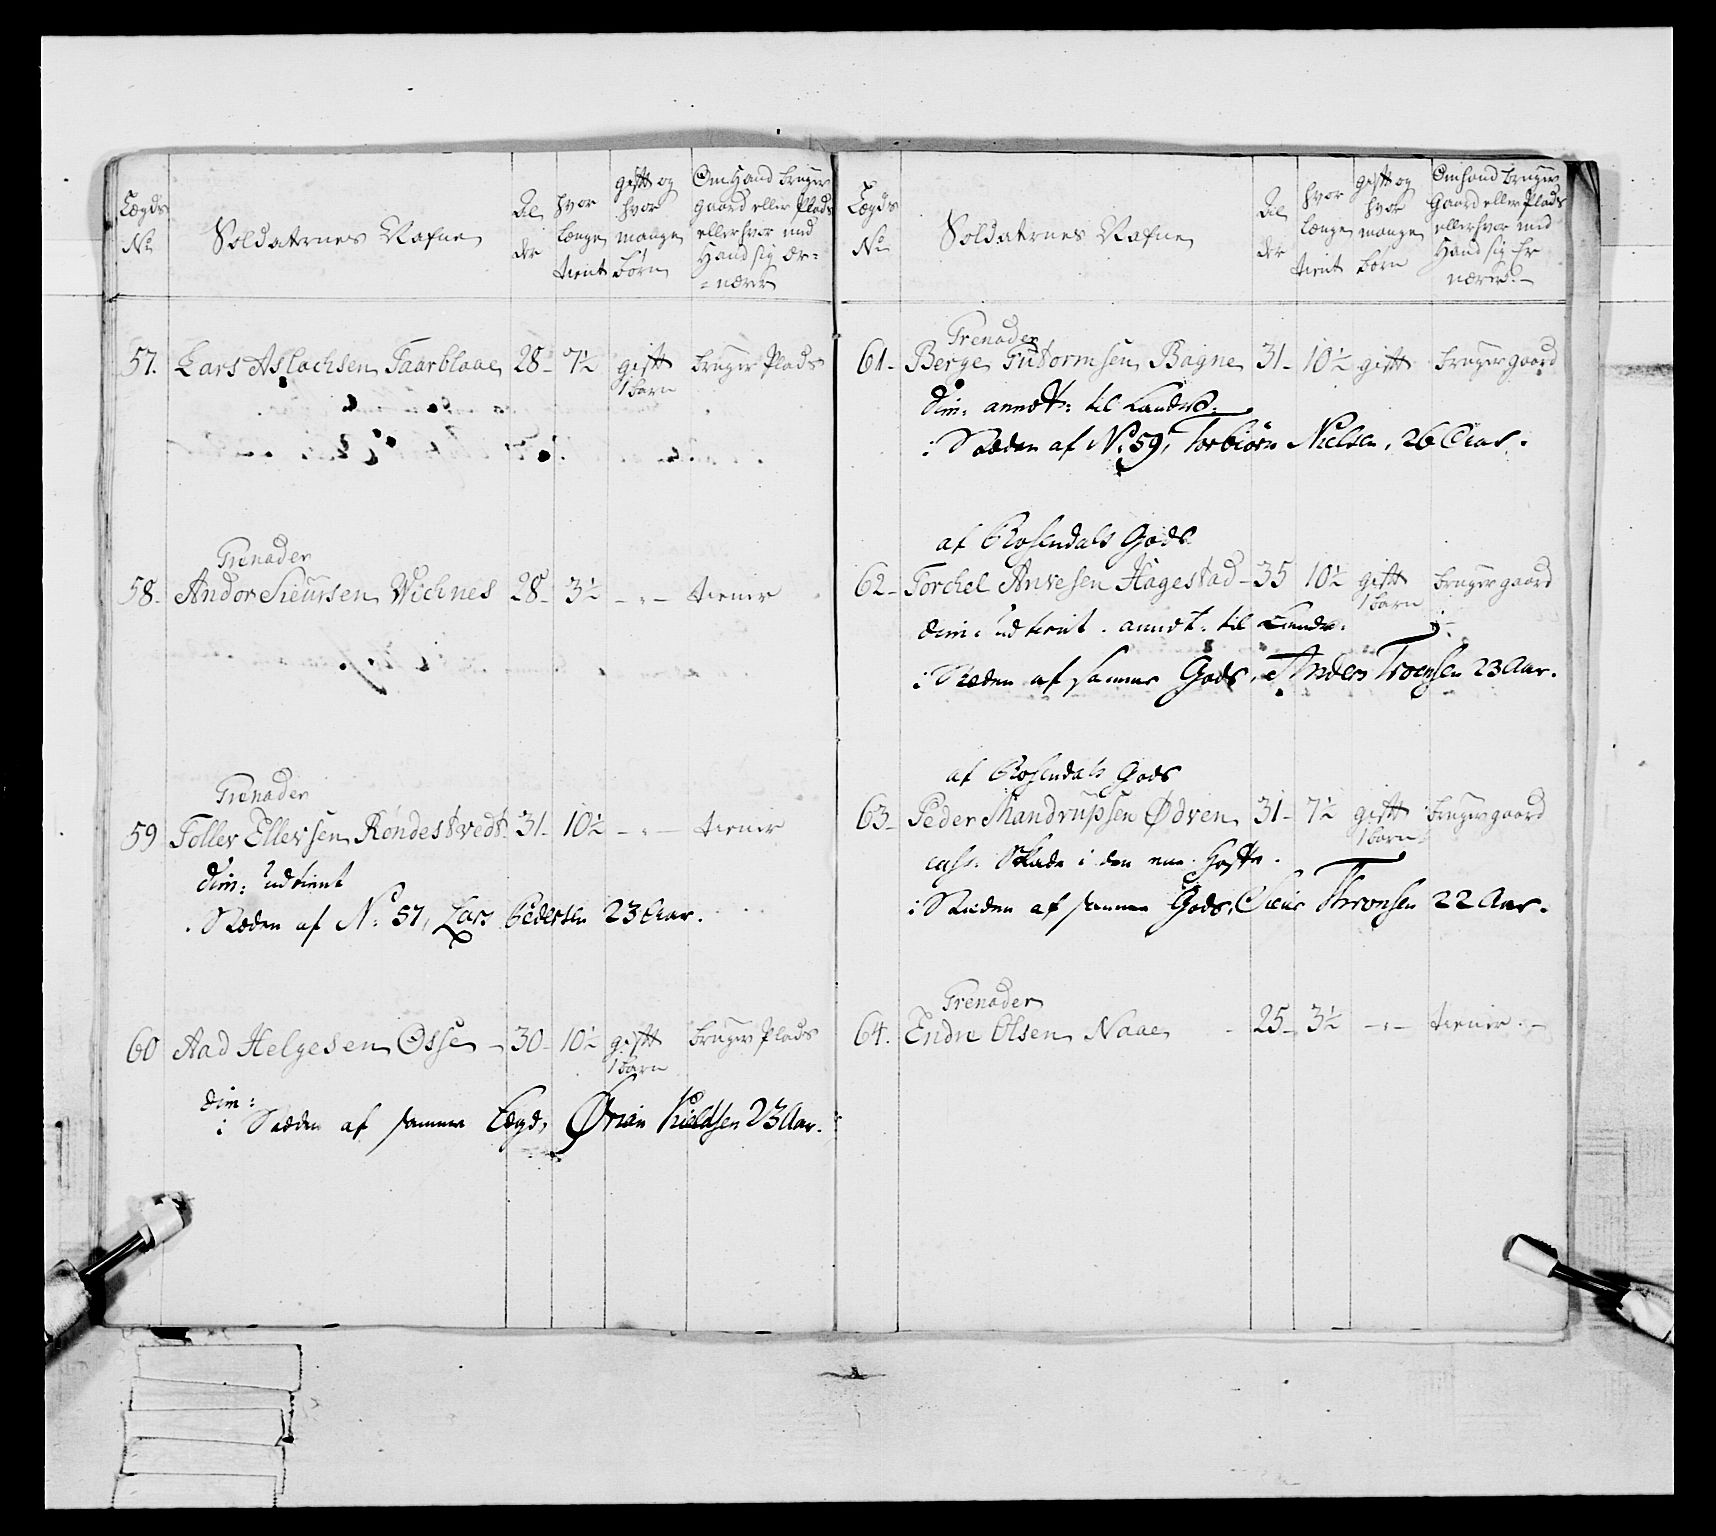 Lægds No
Soldaternes Nafne
Al der
hvor længe tient
gift og hvor mange børn
Om Hand bruger gaard eller Plads eller hvor med Hand sig er= =nærer
57. Lars Aslachsen Taarblaae 28- 7½ gift 1 barn bruger Plads
Grenader
58- Andor Siversen Vichnes 28- 3½ - " - tiener
Grenader
59 Toller Ellevsen Røndestvedt 31- 10½ - " - tiener
dim: udtient
i Stæden af No 57, Lars Pedersen 23 Aar.
60 Aad Helgesen Osse - 30- 10½ gift 1 barn bruger Plads
dim:
i Stæden af samme Lægd, Ørian Kieldsen 23 Aar.
Lægds No
Soldaternes Nafne
Al der
hvor længe tient
gift og hvor mange børn
Om hand bruger Gaard eller Plads eller hvor med Hand sig Er nærer.-
Grenader
61- Berge Gutormsen Bagne 31- 10½ gift bruger gaard
dim: annot: til Landv:
i Stæden af No 59, Torbiørn Nielsen, 26 Aar.
af Rosendals Gods
62- Torchel Anvesen Hagestad - 35 10½ gift 1 barn bruger gaard
dim: udtient. annot: til Landv:
i Stæden af samme Gods, Anders Troensen 23 Aar.
af Rosendals Gods
63- Peder Mandrupsen Ødven 31- 7½ gift 1 barn bruger gaard
cass. Skade i den ene Hofte.
i Stæden af samme Gods, Siur Thronsen 22 Aar.
Grenader
64. Endre Olsen Naae - 25- 3½ - " - tiener. -